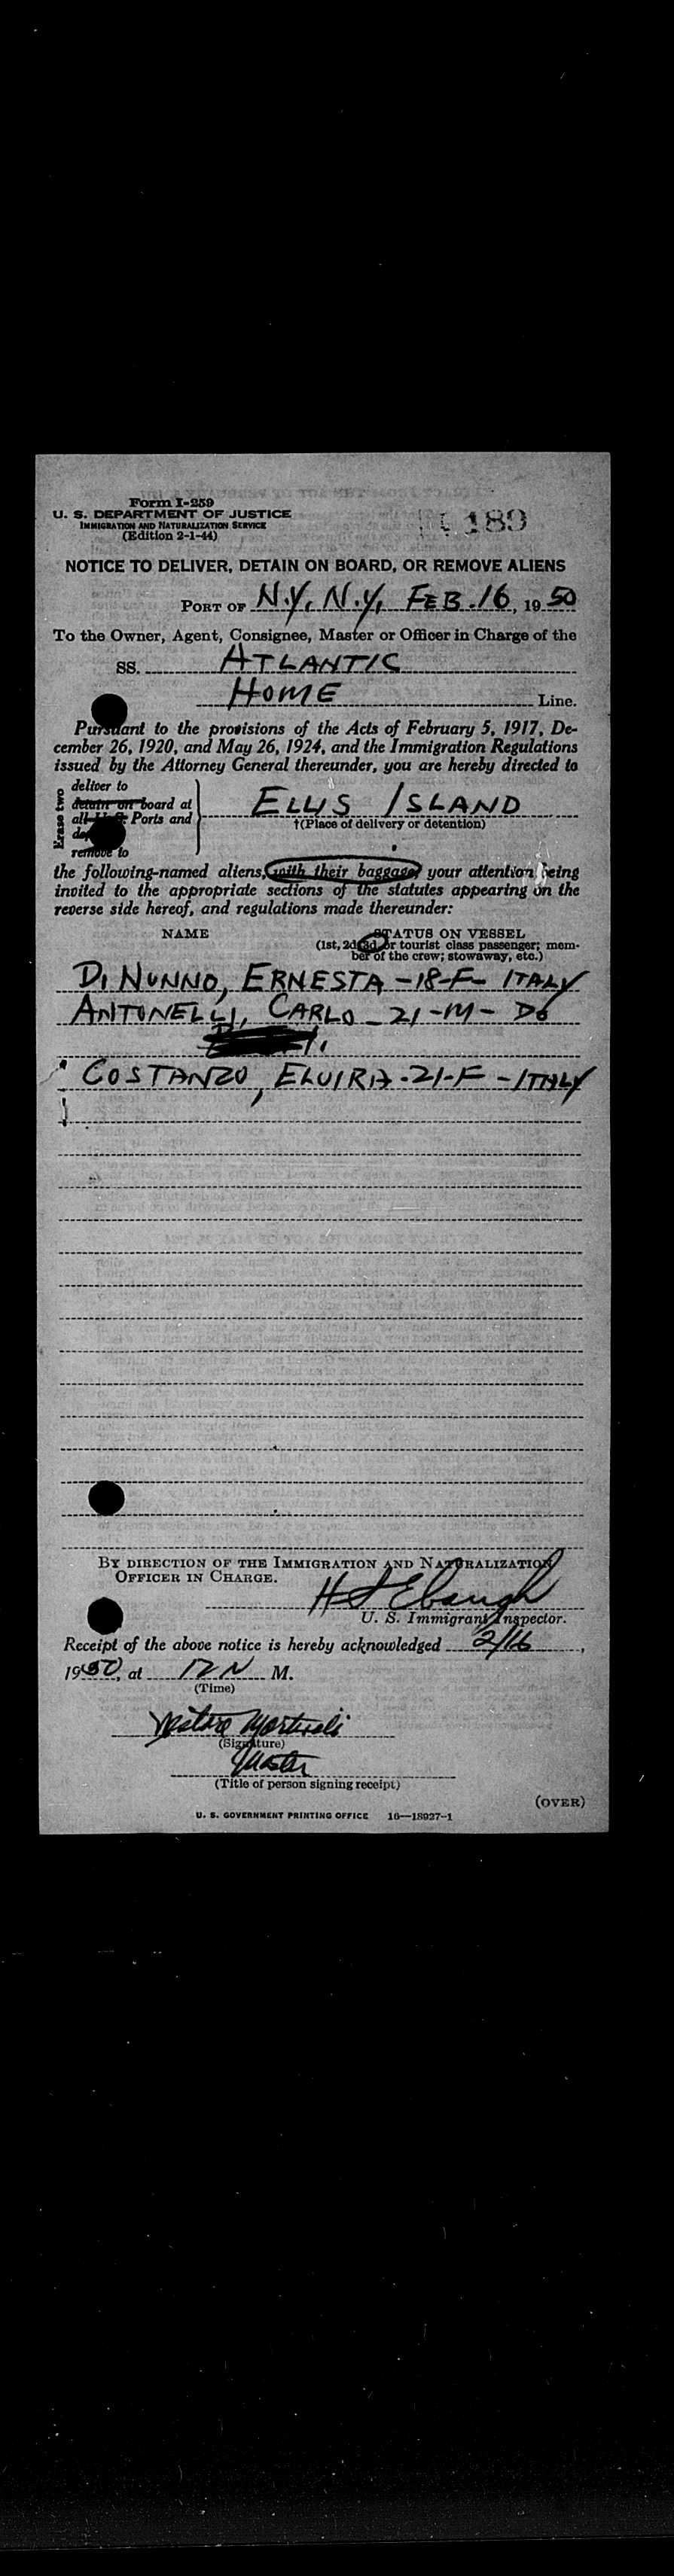 Form I-259
U. S. DEPARTMENT OF JUSTICE
IMMIGRATION AND NATURALIZATION SERVICE
(Edition 2-1-44)
189
NOTICE TO DELIVER, DETAIN ON BOARD, OR REMOVE ALIENS
PORT OF N.Y. N.Y. FEB. 16, 1950
To the Owner, Agent, Consignee, Master or Officer in Charge of the
SS. ATLANTIC
HOME Line.
Pursuant to the provisions of the Acts of February 5, 1917, De-
cember 26, 1920, and May 26, 1924, and the Immigration Regulations
issued by the Attorney General thereunder, you are hereby directed to
Erase two
deliver to
detain on board at
all U. S. Ports and
remove to
ELLIS ISLAND
†(Place of delivery or detention)
the following-named aliens, with their baggage, your attention being
invited to the appropriate sections of the statutes appearing on the
reverse side hereof, and regulations made thereunder:
NAME STATUS ON VESSEL
(1st, 2d, 3d, or tourist class passenger; mem-
ber of the crew; stowaway, etc.)
DI NUNNO, ERNESTA - 18-F- ITALY
ANTONELLI, CARLO - 21-M- DO
COSTANZO, ELVIRA - 21-F - ITALY
BY DIRECTION OF THE IMMIGRATION AND NATURALIZATION
OFFICER IN CHARGE.
H Ebaugh
U. S. Immigrant Inspector.
Receipt of the above notice is hereby acknowledged 2/16,
1950, at 12 N M.
(Time)
(Signature)
Master
(Title of person signing receipt)
(OVER)
U. S. GOVERNMENT PRINTING OFFICE 16—18927-1